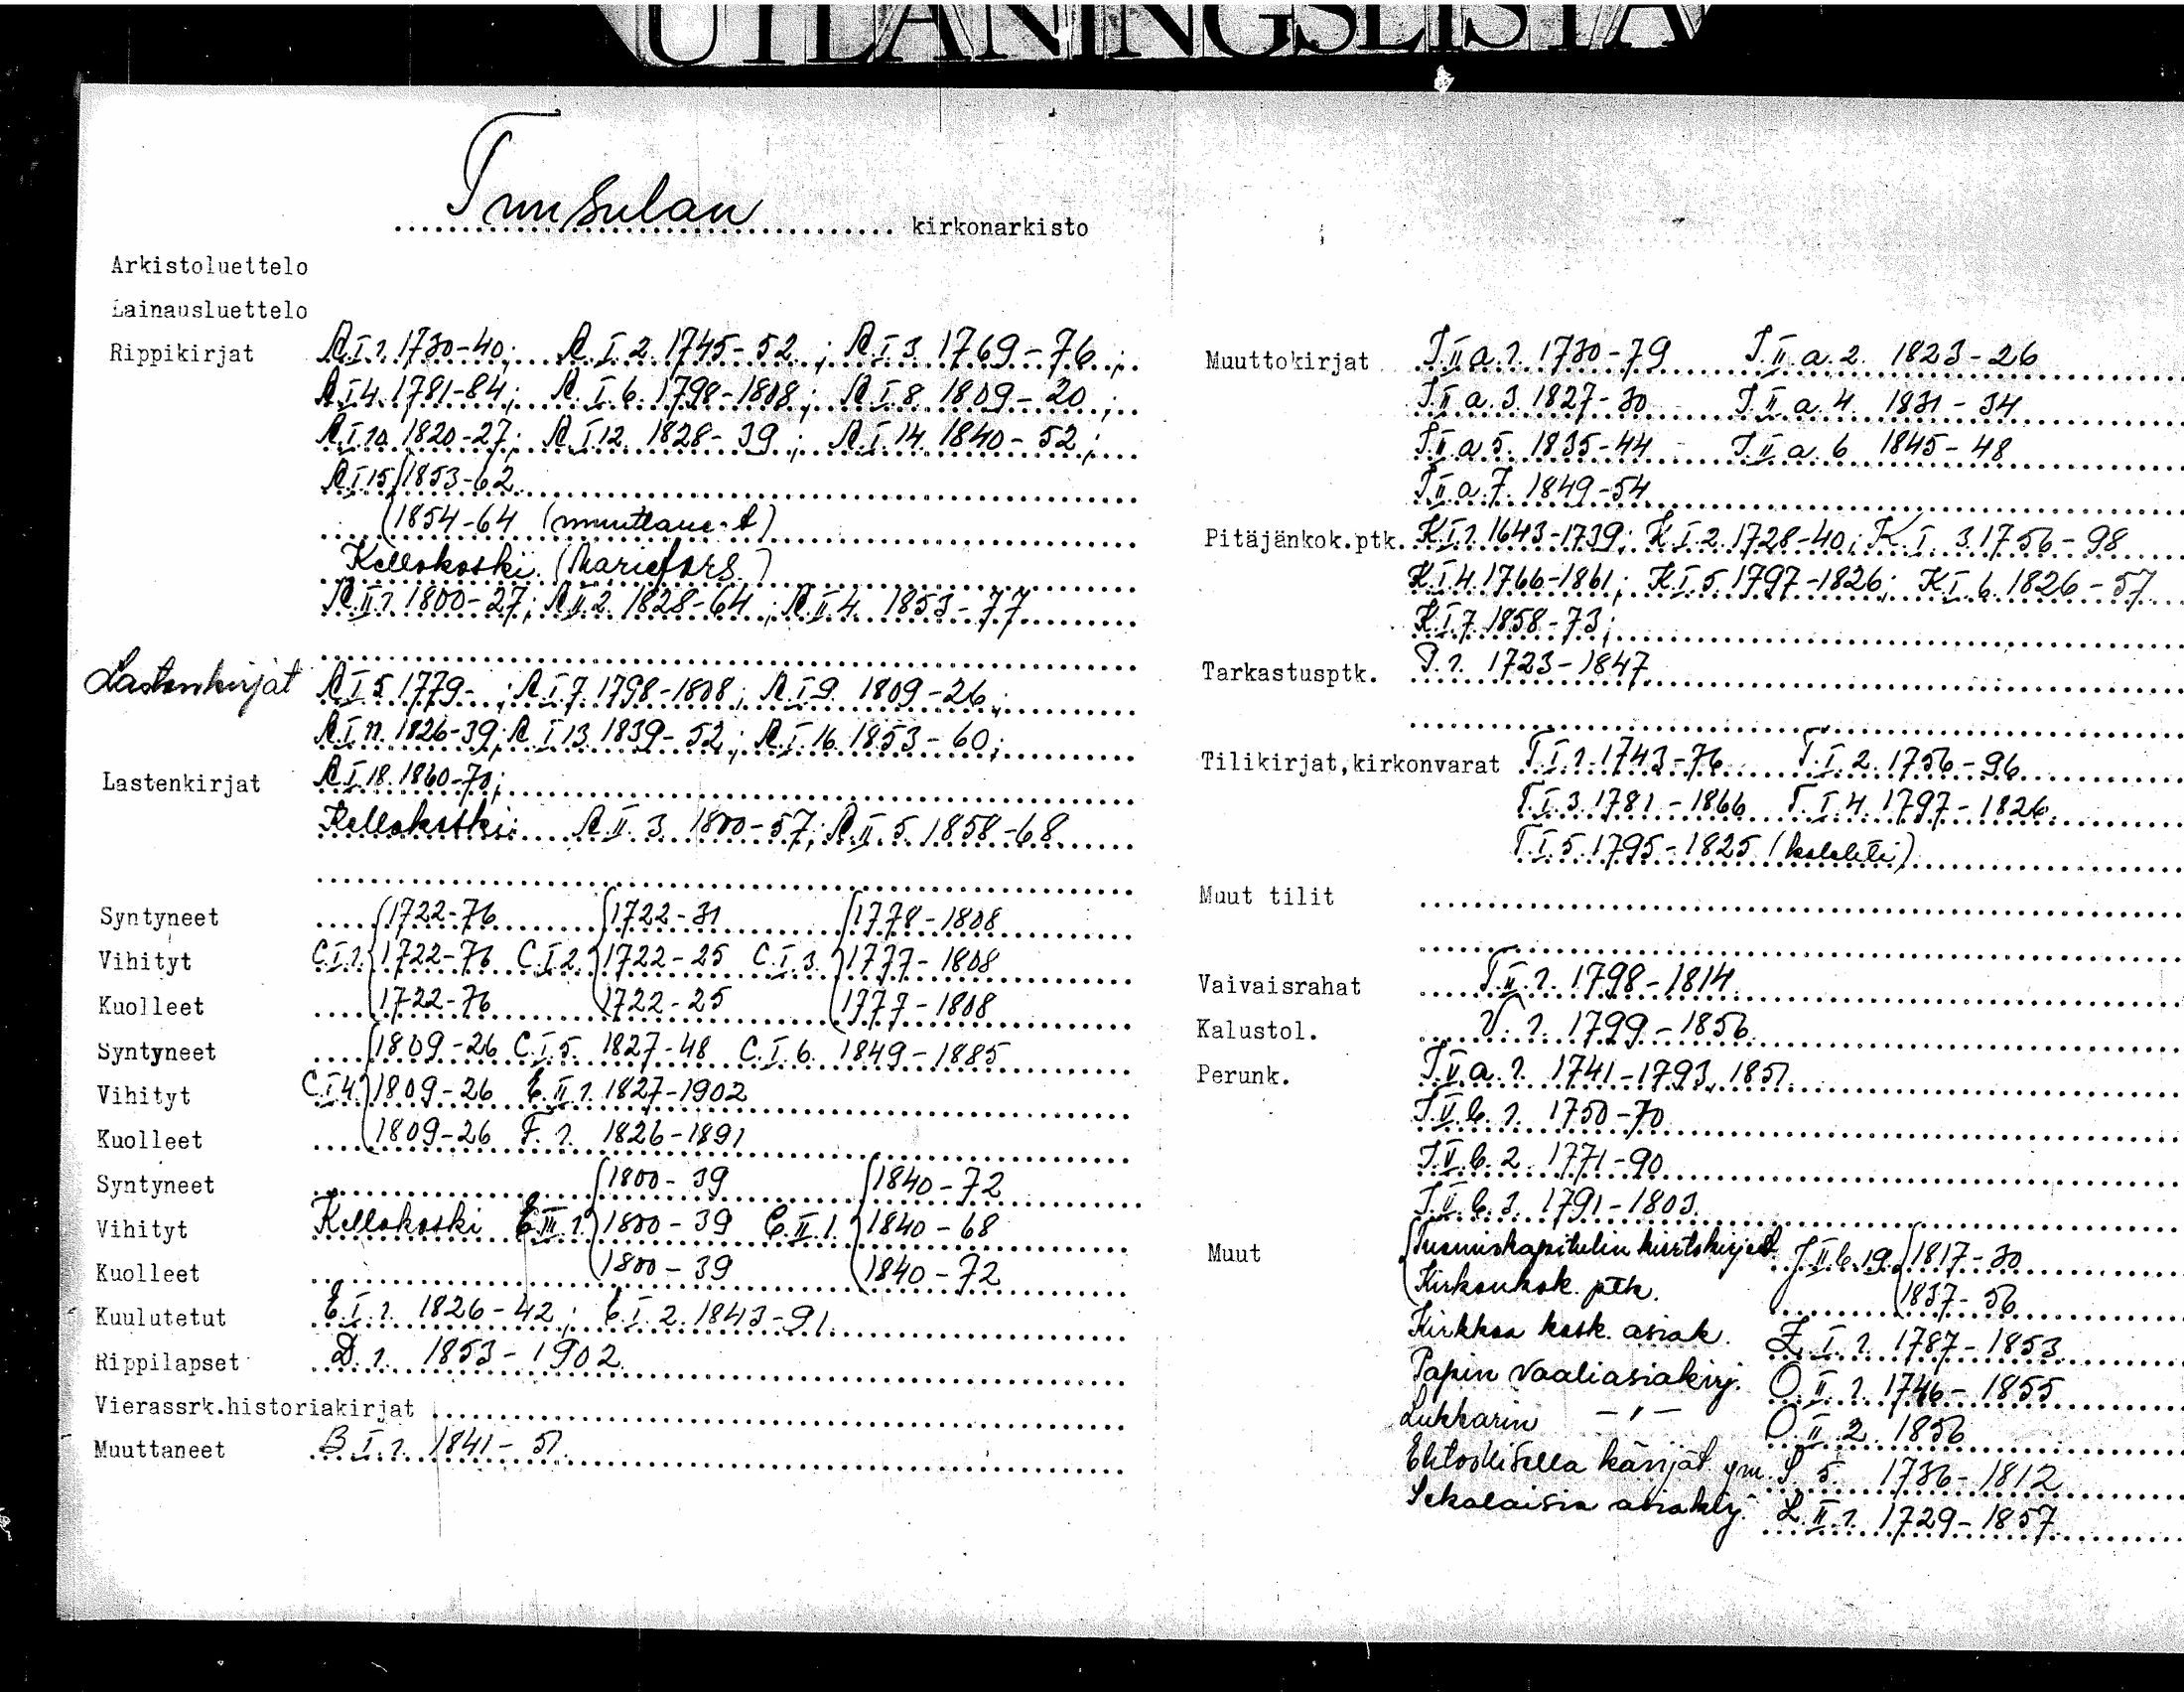 UTLÅNINGSLISTA
Tuusulan kirkonarkisto
Arkistoluettelo
Lainausluettelo
Rippikirjat A.I.1. 1730-40; A.I.2. 1745-52; A.I.3. 1769-76;
A.I.4. 1781-84; A.I.6. 1798-1808; A.I.8. 1809-20;
A.I.10. 1820-27; A.I.12. 1828-39; A.I.14. 1840-52;
A.I.15. 1853-62
1854-64 (muuttane-t)
Kellokoski (Mariefors)
A.II.1. 1800-27; A.II.2. 1828-64; A.II.4. 1853-77
Lastenkirjat A.I.5. 1779- ; A.I.7. 1798-1808; A.I.9. 1809-26;
A.I.11. 1826-39; A.I.13. 1839-52; A.I.16. 1853-60;
Lastenkirjat A.I.18. 1860-70;
Kellokoski: A.II.3. 1800-57; A.II.5. 1858-68
Syntyneet 1722-76 1722-31 1778-1808
Vihityt C.I.1. 1722-76 C.I.2. 1722-25 C.I.3. 1777-1808
Kuolleet 1722-76 1722-25 1777-1808
Syntyneet 1809-26 C.I.5. 1827-48 C.I.6. 1849-1885
Vihityt C.I.4. 1809-26 E.II.1. 1827-1902
Kuolleet 1809-26 F.1. 1826-1891
Syntyneet 1800-39 1840-72
Vihityt Kellokoski C.III.1. 1800-39 C.II.1. 1840-68
Kuolleet 1800-39 1840-72
Kuulutetut E.I.1. 1826-42; E.I.2. 1843-91
Rippilapset D.1. 1853-1902
Vierassrk.historiakirjat
Muuttaneet B.I.1. 1841-51
Muuttokirjat J.II.a.1. 1730-79 J.II.a.2. 1823-26
J.II.a.3. 1827-30 J.II.a.4. 1831-34
J.II.a.5. 1835-44 J.II.a.6. 1845-48
J.II.a.7. 1849-54
Pitäjänkok.ptk. K.I.1. 1643-1739; K.I.2. 1728-40; K.I.3. 1756-98
K.I.4. 1766-1861; K.I.5. 1797-1826; K.I.6. 1826-57
K.I.7. 1858-73;
Tarkastusptk. P.1. 1723-1847
Tilikirjat,kirkonvarat T.I.1. 1743-76 T.I.2. 1756-96
T.I.3. 1781-1866 T.I.4. 1797-1826
T.I.5. 1795-1825 (kolehti)
Muut tilit
Vaivaisrahat T.II.1. 1798-1814
Kalustol. V.1. 1799-1856
Perunk. J.V.a.1. 1741-1793, 1851
J.V.b.1. 1750-70
J.V.b.2. 1771-90
J.V.b.3. 1791-1803
Muut Tuomiokapitulin kiertokirjeet J.II.b.19. 1817-30
Kirkonkok. ptk. 1837-56
Kirkkoa kosk. asiak. Z.I.1. 1787-1853
Papin vaaliasiakirj. O.II.1. 1746-1855
Lukkarin -"- O.II.2. 1856
Ehtoollisella kävijät ym. S 5. 1736-1812
Sekalaisia asiakirj. L.II.1. 1729-1857